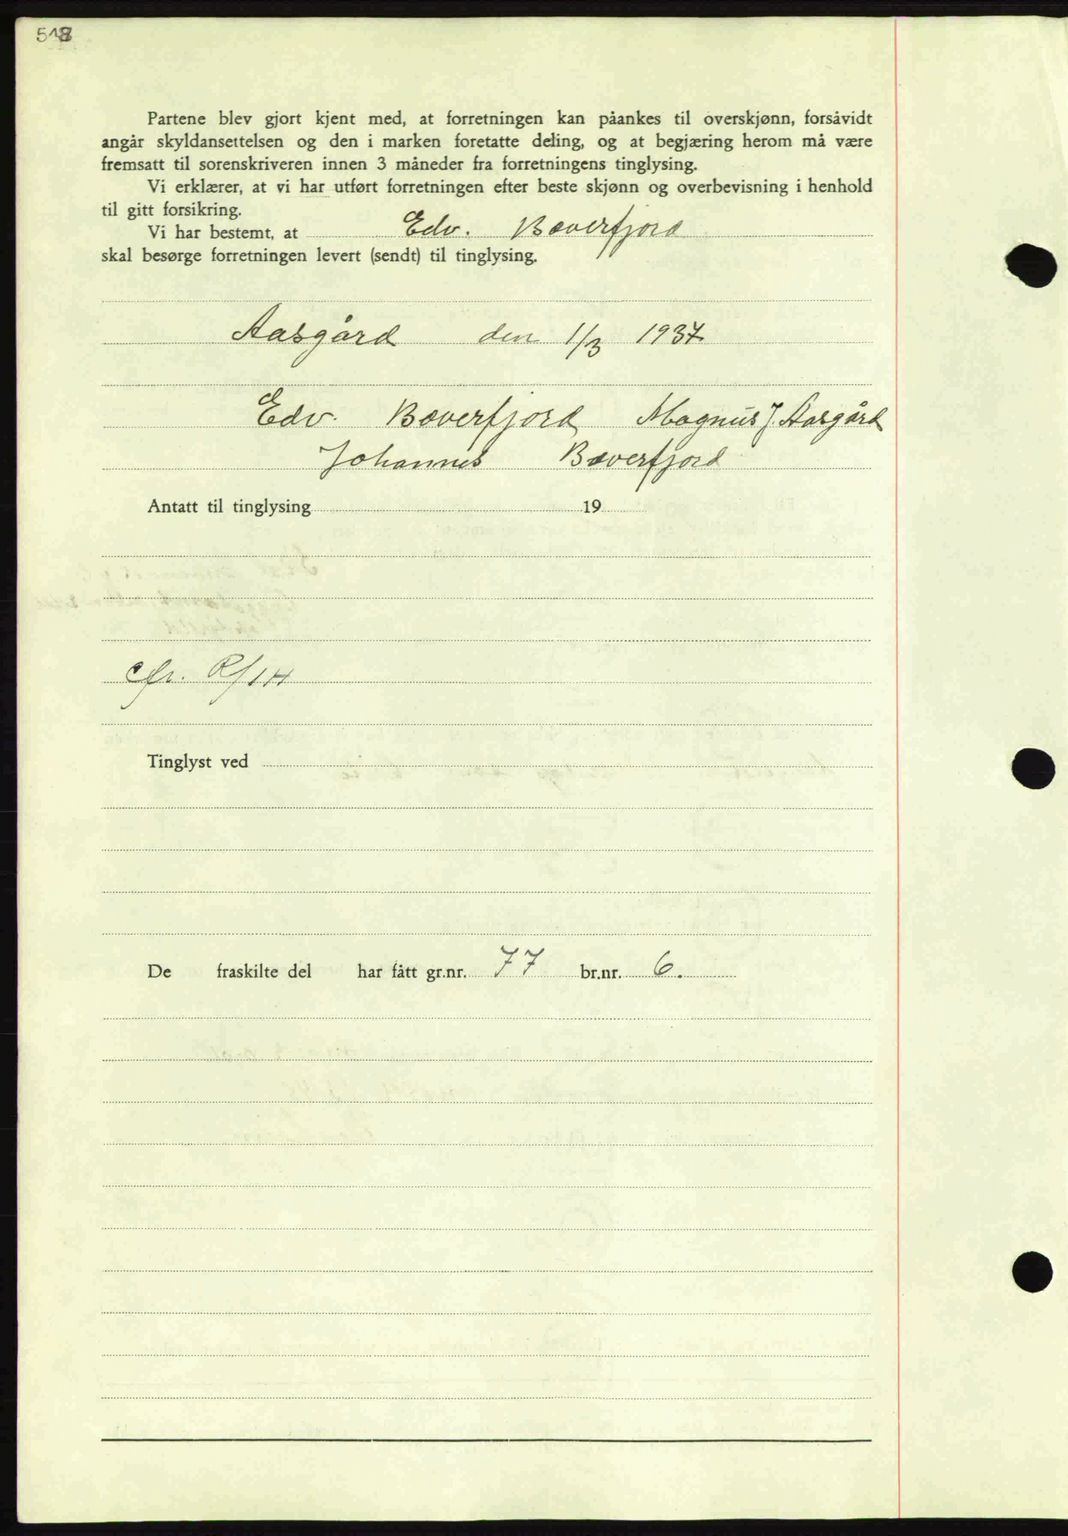 518
Partene blev gjort kjent med, at forretningen kan påankes til overskjønn, forsåvidt
angår skyldansettelsen og den i marken foretatte deling, og at begjæring herom må være
fremsatt til sorenskriveren innen 3 måneder fra forretningens tinglysing.
Vi erklærer, at vi har utført forretningen efter beste skjønn og overbevisning i henhold
til gitt forsikring.
Vi har bestemt, at Edv. Bæverfjord
skal besørge forretningen levert (sendt) til tinglysing.
Aasgård den 1/3 1937
Edv. Bæverfjord Magnus J. Aasgård
Johannes Bæverfjord
Antatt til tinglysing 19
cfr. R/14
Tinglyst ved
De fraskilte del har fått gr.nr. 77 br.nr. 6.